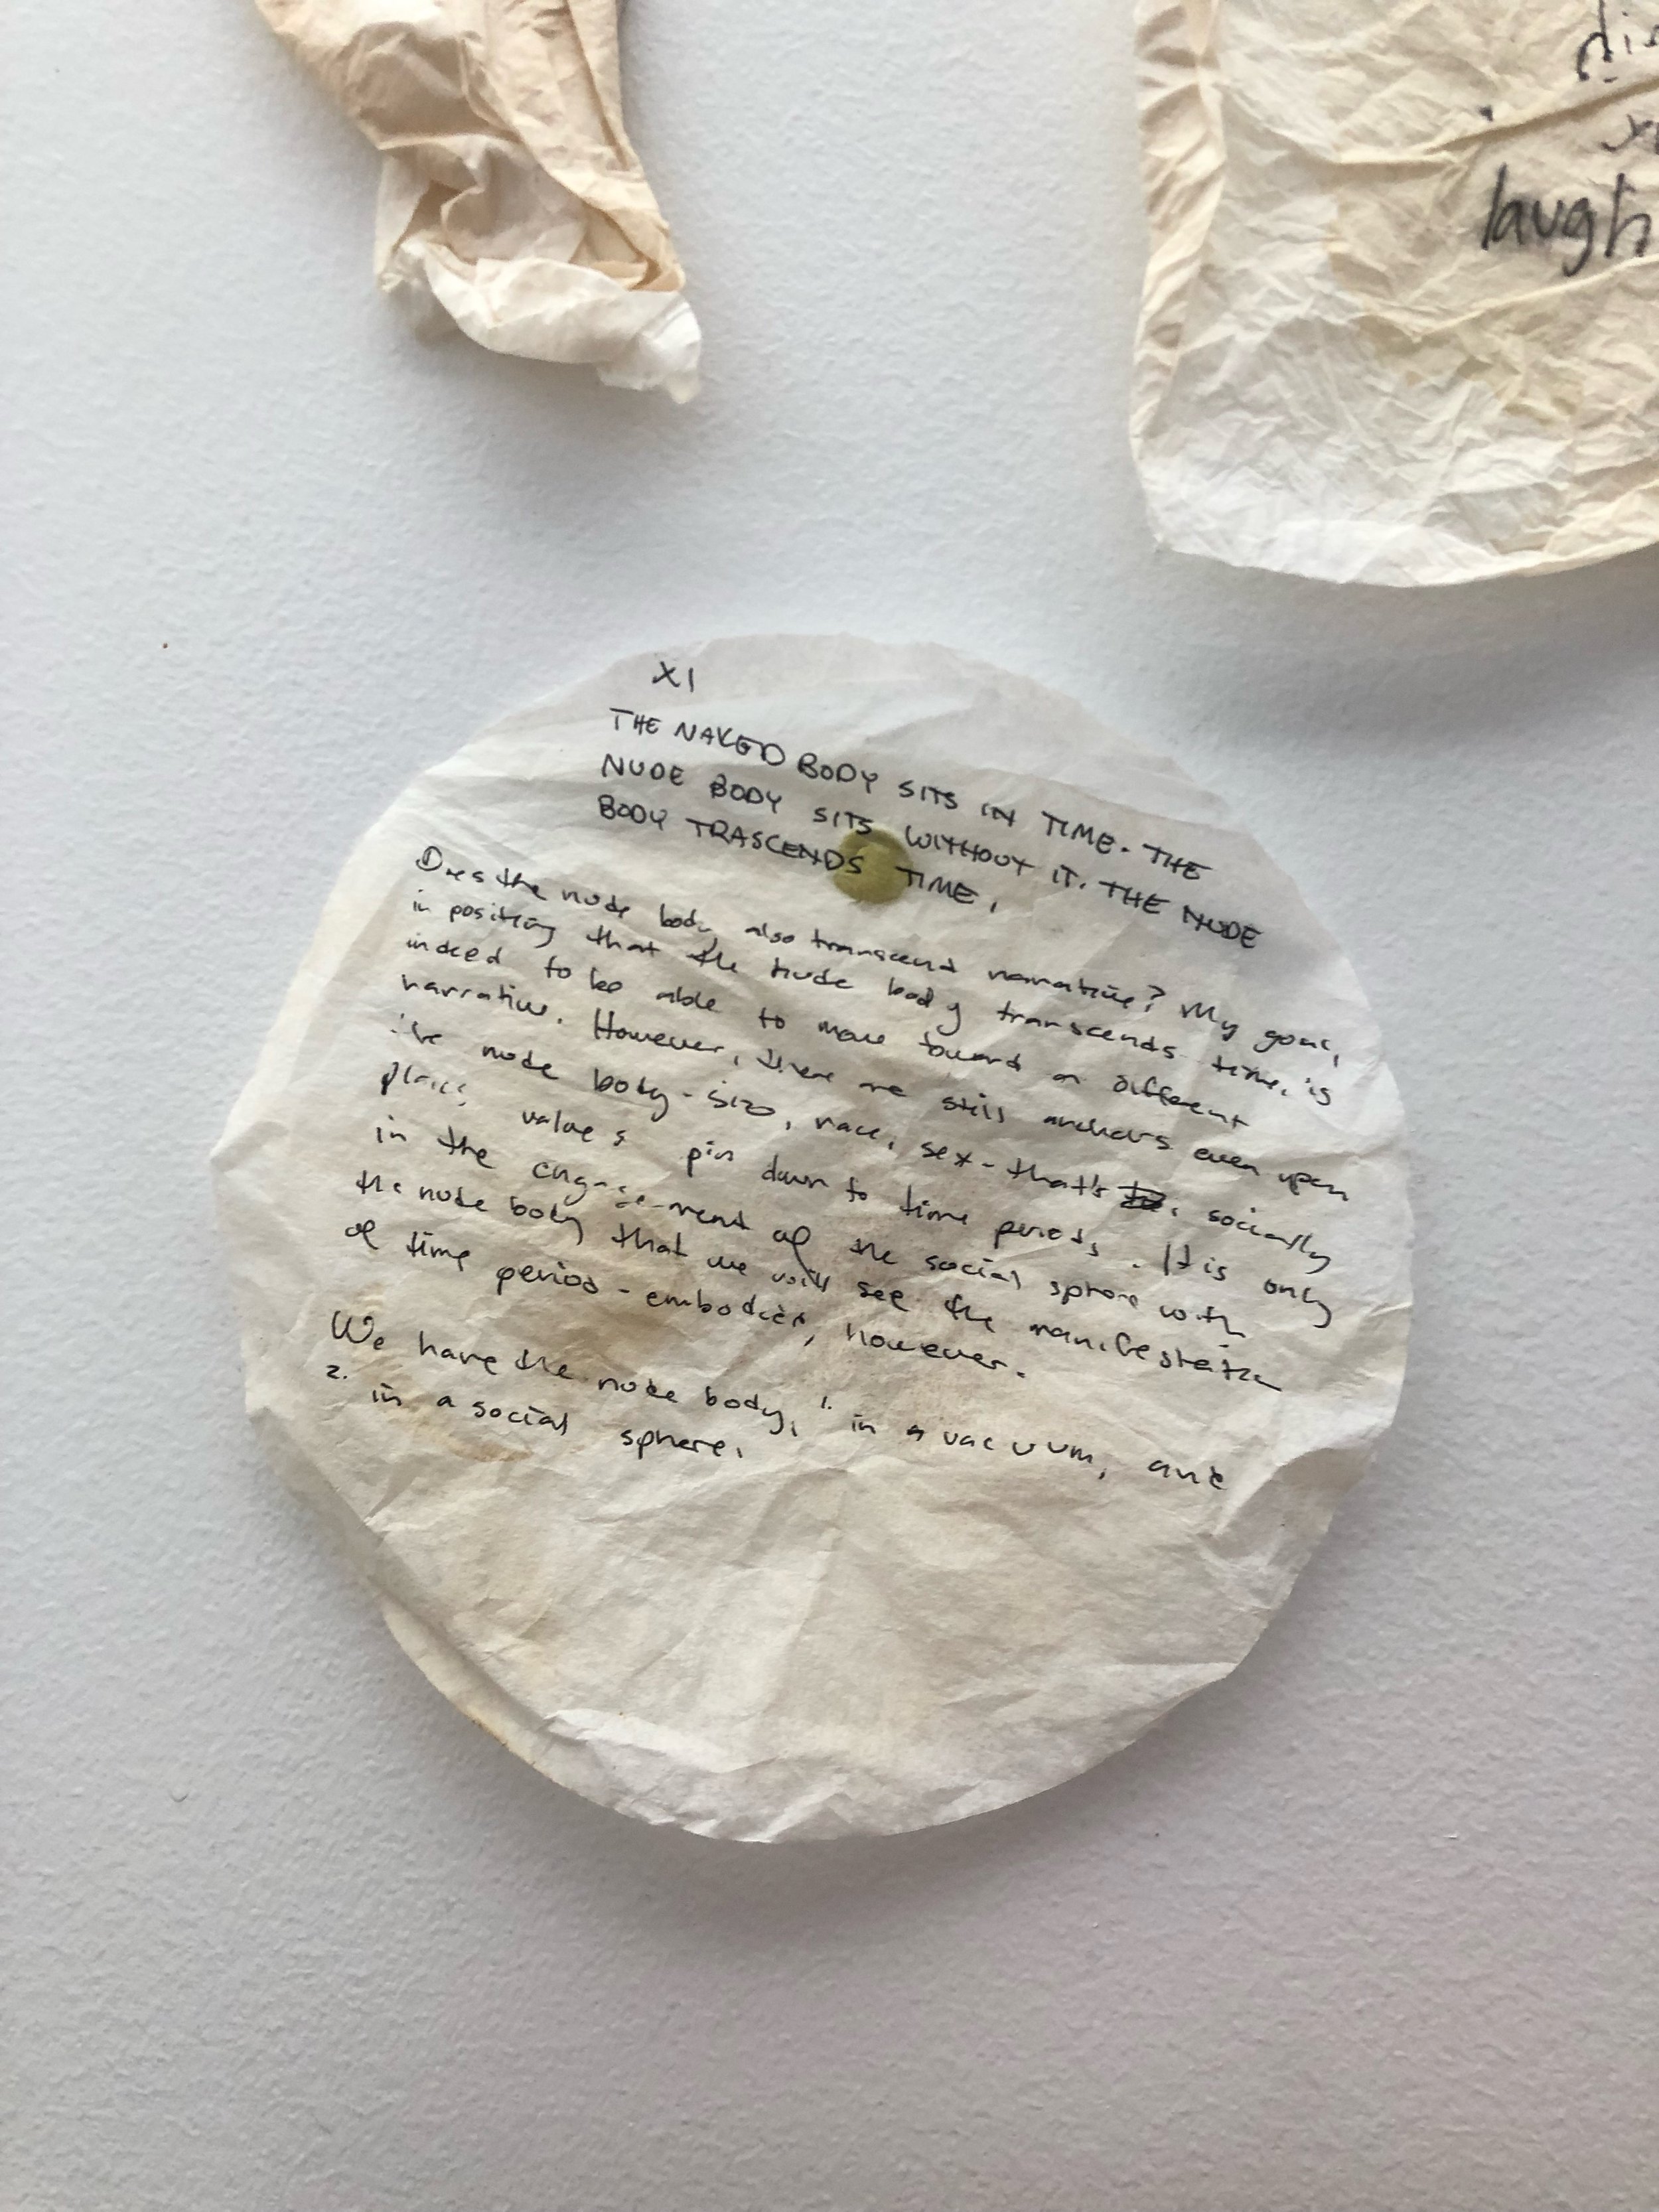 di
laugh
XI
THE NAKED BODY SITS IN TIME. THE
NUDE BODY SITS WITHOUT IT. THE NUDE
BODY TRASCENDS TIME.
Does the nude body also transcend narrative? My goal,
in positing that the nude body transcends time, is
indeed to be able to move toward a different
narrative. However, there are still anchors even upon
the nude body - size, race, sex - that's socially
place values pin down to time periods. It is only
in the engagement of the social sphere with
the nude body that we will see the manifestation
of time period - embodied, however.
We have the nude body, 1. in a vacuum, and
2. in a social sphere.